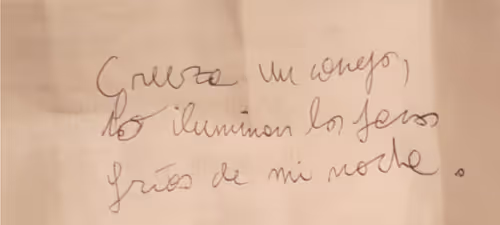 Cruza un conejo,
lo iluminan los faros
fríos de mi noche.